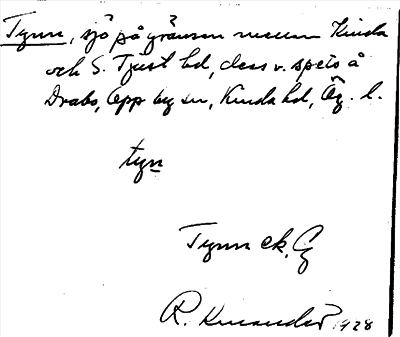 Tynn, sjö på gränsen mellan Kinda
och S. Tjust hd, dess v. spets å
Drabo, Opp by sn, Kinda hd, Ög. l.
tyn
Tynn ek. G
R. Knander 1928